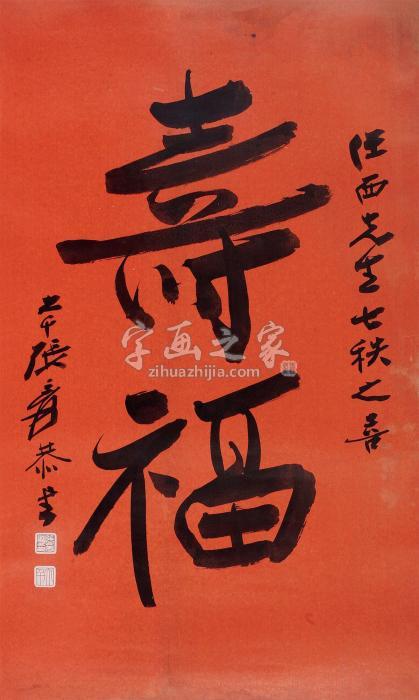 壽福
任西先生七秩之喜
大千張爰恭書
字画之家
zihuazhijia.com